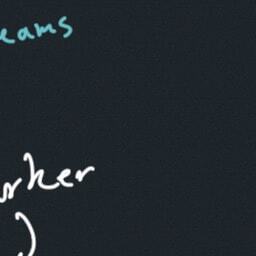 eams
rker
)